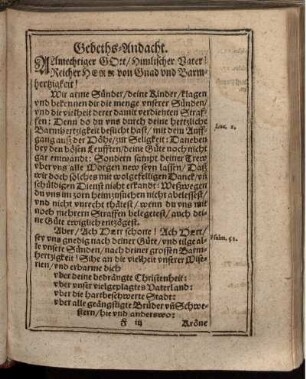 Gebeths-Andacht.
Allmechtiger GOtt/Himlischer Vater/
Reicher HERR von Gnad vnd Barm-
hertzigkeit!
Wir arme Sünder/deine Kinder/klagen
vnd bekennen dir die menge vnserer Sünden/
vnd die vielheit derer damit verdienten Straf-
fen: Denn do du vns durch deine hertzliche
Barmhertzigkeit besucht hast/mit dem Auff-
gang auß der Höhe/zur Seligkeit: Daneben
bey den bösen Leufften/deine Güte noch nicht
gar entwandt: Sondern sampt deiner Trew
vber vns alle Morgen new seyn lassen/Daß
wir doch solches mit wolgefelligen Danck/vñ
schüldigen Dienst nicht erkandt: Weßwegen
du vns im zorn heimzusuchen nicht abelessest/
vnd nicht vnrecht thätest/wenn du vns mit
noch mehrern Straffen belegetest/auch dei-
ne Güte ewiglich entzögest.
Aber/Ach HErr schone! Ach HErr/
sey vns gnedig nach deiner Güte/vnd tilge al-
le vnsere Sünden/nach deiner grossen Barm-
hertzigkeit! Sihe an die vielheit vnserer Mise-
rien/vnd erbarme dich
vber deine bedrängte Christenheit:
vber vnser vielgeplagtes Vaterland:
vber die hartbeschwerte Stadt:
vber alle geängstigte Brüder vñ Schwe-
stern/hie vnd anderswo:
F iij
Kröne
Luc. 1.
Psalm. 51.